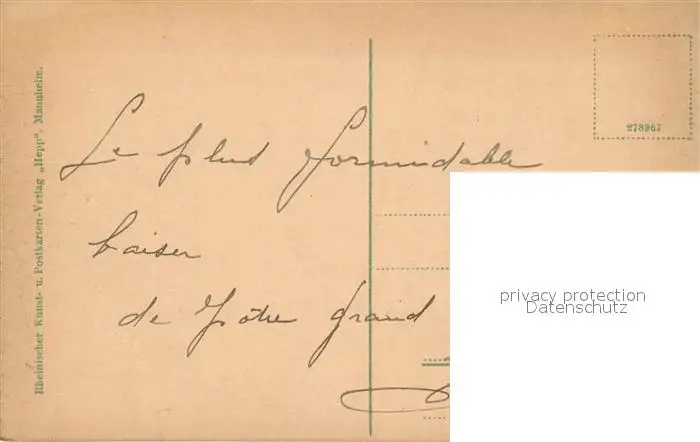 Rheinischer Kunst- u. Postkarten-Verlag „Hepp", Mannheim.
278967
Le plus formidable
baiser
de Votre grand
privacy protection
Datenschutz